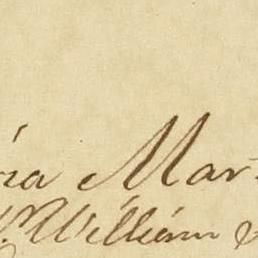 ria Mar
William